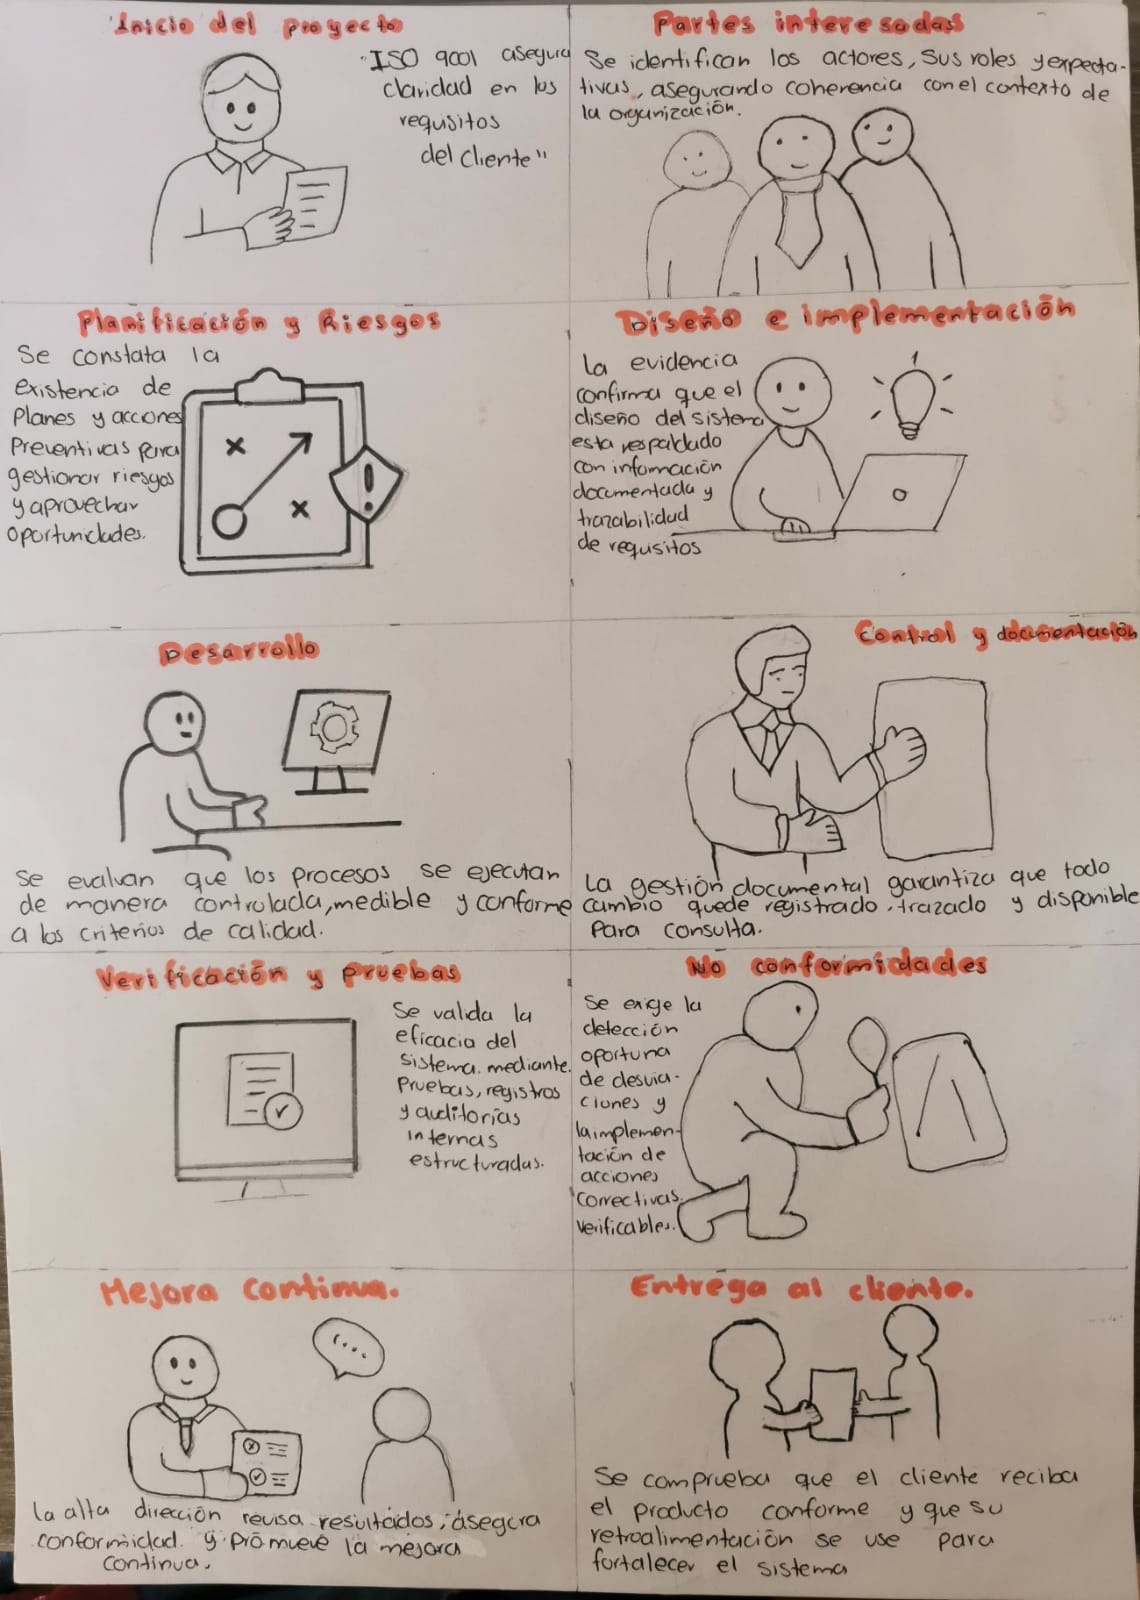 Inicio del proyecto
"ISO 9001 asegura
claridad en los
requisitos
del cliente"
Partes interesadas
Se identifican los actores, sus roles y expecta-
tivas, asegurando coherencia con el contexto de
la organización.
Planificación y Riesgos
Se constata la
existencia de
Planes y acciones
Preventivas para
gestionar riesgos
y aprovechar
oportunidades.
Diseño e implementación
La evidencia
confirma que el
diseño del sistema
esta respaldado
con información
documentada y
trazabilidad
de requsitos
Desarrollo
Se evaluan que los procesos se ejecutan
de manera controlada, medible y conforme
a los criterios de calidad.
Control y documentación
La gestión documental garantiza que todo
cambio quede registrado, trazado y disponible
Para consulta.
Verificación y pruebas
Se valida la
eficacia del
sistema. mediante.
Pruebas, registros
y auditorías
internas
estructuradas.
No conformidades
Se exige la
detección
oportuna
de desvia-
ciones y
la implemen-
tación de
acciones
correctivas.
verificables.
Mejora continua.
La alta dirección revisa resultados, asegura
conformidad y promueve la mejora
continua.
Entrega al cliente.
Se comprueba que el cliente reciba
el producto conforme y que su
retroalimentación se use para
fortalecer el sistema